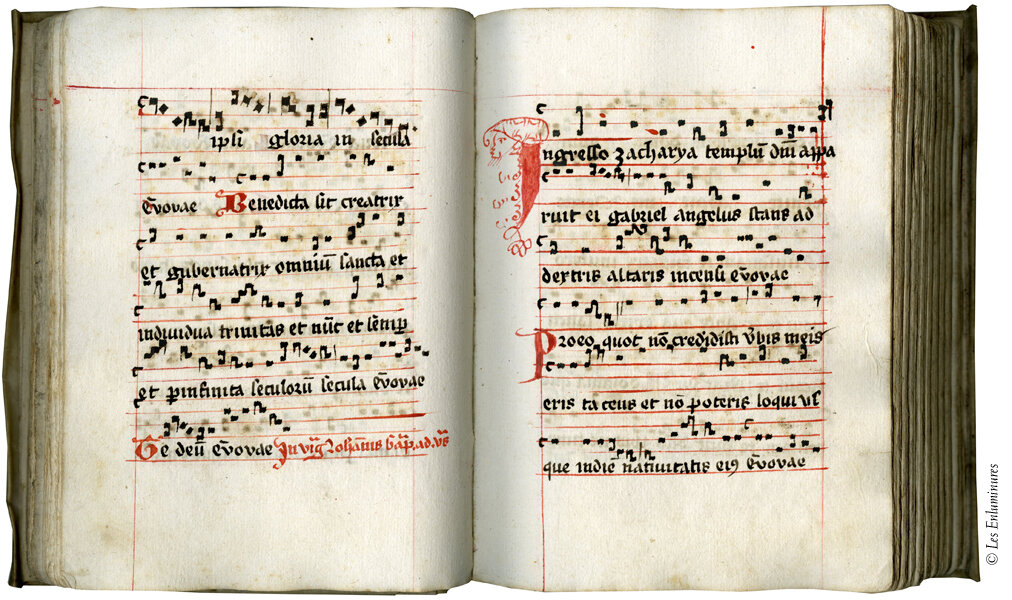 ipsi gloria in secula
Evovae Benedicta sit creatrix
et gubernatrix omniū sancta et
individua trinitas et nūc et semp
et pinfinita seculorū secula Evovae
Te deū Evovae In vig Johānis bap ad vs
Ingresso zacharya templū dnī appa
ruit ei gabriel angelus stans ad
dextris altaris incensi Evovae
Proeo quot nō credidisti vbis meis
eris taceus et nō poteris loqui vs
que indiē nativitatis ei9 Evovae
© Les Enluminures